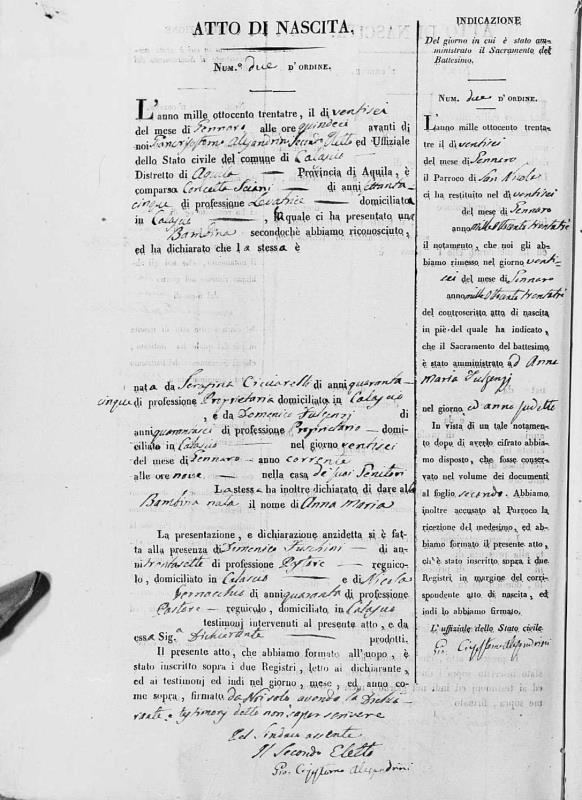 ATTO DI NASCITA.
NUM.º due D'ORDINE.
L'anno mille ottocento trentatre, il dì ventisei
del mese di Gennaro alle ore quindeci avanti di
noi Alesandrini Secondo Eletto ed Uffiziale
dello Stato civile del comune di Calascio
Distretto di Aquila — Provincia di Aquila, è
comparsa Concetta Sciani — di anni
cinque di professione Levatrice — domiciliata
in Calascio — , quale ci ha presentato una
Bambina secondochè abbiamo riconosciuto,
ed ha dichiarato che la stessa è
nata da Serafina Ciciarelli di anni quaranta-
cinque di professione Proprietaria domiciliato in Calascio
, e da Domenico Fulgenzj di
anni di professione Proprietario — domi-
ciliato in Calascio nel giorno ventisei
del mese di Gennaro — anno corrente
alle ore nove — nella casa de' suoi Genitori
La stessa ha inoltre dichiarato di dare alla
Bambina nata il nome di Anna Maria
La presentazione, e dichiarazione anzidetta si è fat-
ta alla presenza di Domenico — di an-
ni trentasette di professione Pastore — regnico-
lo, domiciliato in Calascio — e di Nicola
di anni quaranta di professione
Pastore — regnicolo, domiciliato in Calascio
testimonj intervenuti al presente atto, e da
essa Sig.ª Dichiarante — prodotti.
Il presente atto, che abbiamo formato all'uopo, è
stato inscritto sopra i due Registri, letto ai dichiarante,
ed ai testimonj ed indi nel giorno, mese, ed anno co-
me sopra, firmato da Noi solo avendo la Dichia-
rante e testimonj detto non saper scrivere
Pel Sindaco assente
Il Secondo Eletto
Gio. Crisostomo Alesandrini
INDICAZIONE
Del giorno in cui è stato am-
ministrato il Sacramento del
Battesimo.
NUM. due D'ORDINE.
L'anno mille ottocento trenta-
tre il dì ventisei
del mese di Gennaro
il Parroco di San Nicola
ci ha restituito nel dì ventisei
del mese di Gennaro
anno mille ottocento trentatrè
il notamento, che noi gli ab-
biamo rimesso nel giorno venti-
sei del mese di Gennaro
anno mille ottocento trentatrè
del controscritto atto di nascita
in piè del quale ha indicato,
che il Sacramento del battesimo
è stato amministrato ad Anna
Maria Fulgenzj
nel giorno ed anno sudetto
In vista di un tale notamen-
to dopo di averlo cifrato abbia-
mo disposto, che fosse conser-
vato nel volume dei documenti
al foglio secondo. Abbiamo
inoltre accusato al Parroco la
ricezione del medesimo, ed ab-
biamo formato il presente atto,
ch'è stato inscritto sopra i due
Registri in margine del corri-
spondente atto di nascita, ed
indi lo abbiamo firmato.
L'uffiziale dello Stato civile
Gio. Crisostomo Alesandrini